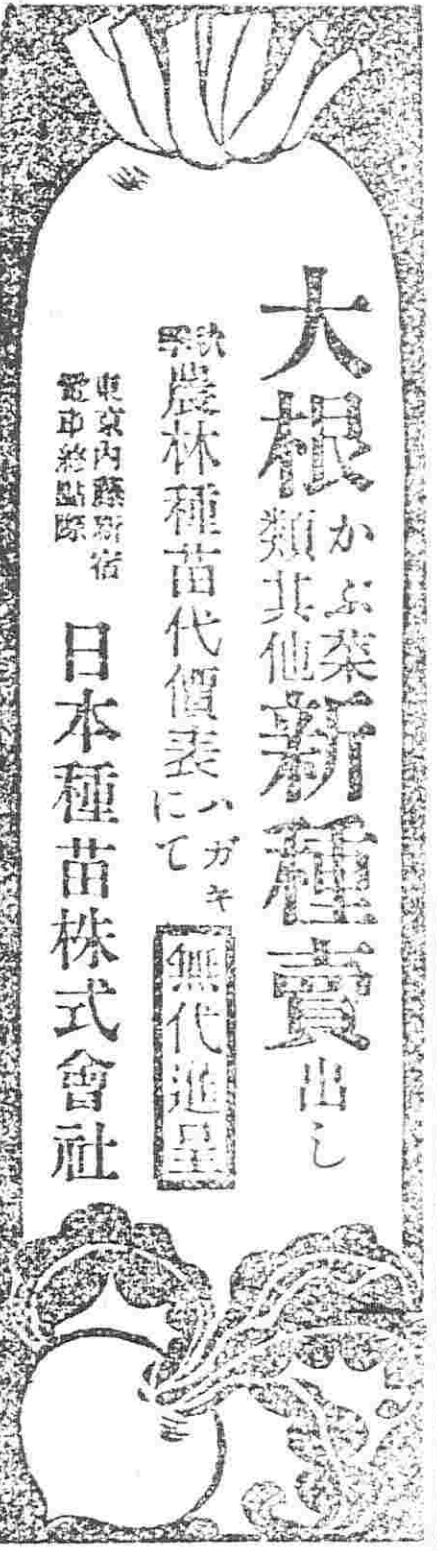 大根かぶ菜類其他新種賣出し
秋季農林種苗代價表ハガキにて無代進呈
東京内藤新宿
電車終點際
日本種苗株式會社